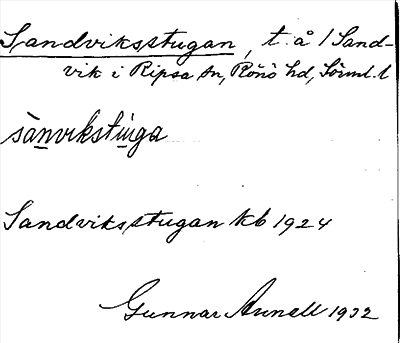 Sandviksstugan, t. å 1 Sand-
vik i Ripsa sn, Rönö hd, Sörml. l
sànvikstùga
Sandviksstugan kb 1924
Gunnar Arnell 1932